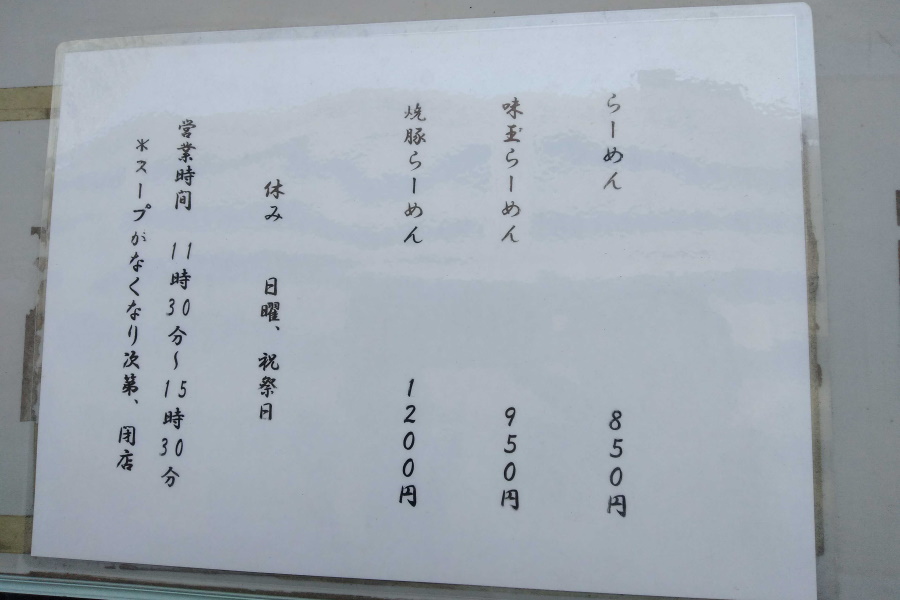 らーめん 850円
味玉らーめん 950円
焼豚らーめん 1200円
休み 日曜、祝祭日
営業時間 11時30分〜15時30分
*スープがなくなり次第、閉店